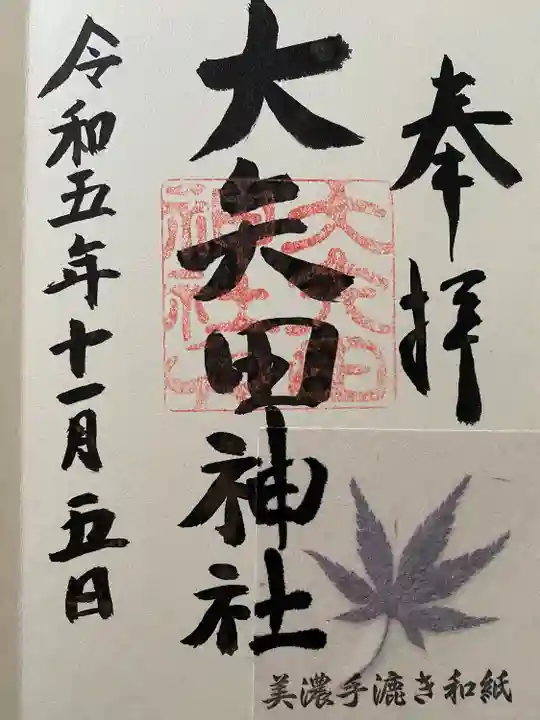 奉拝
大矢田神社
大矢田
神社
令和五年十一月五日
美濃手漉き和紙